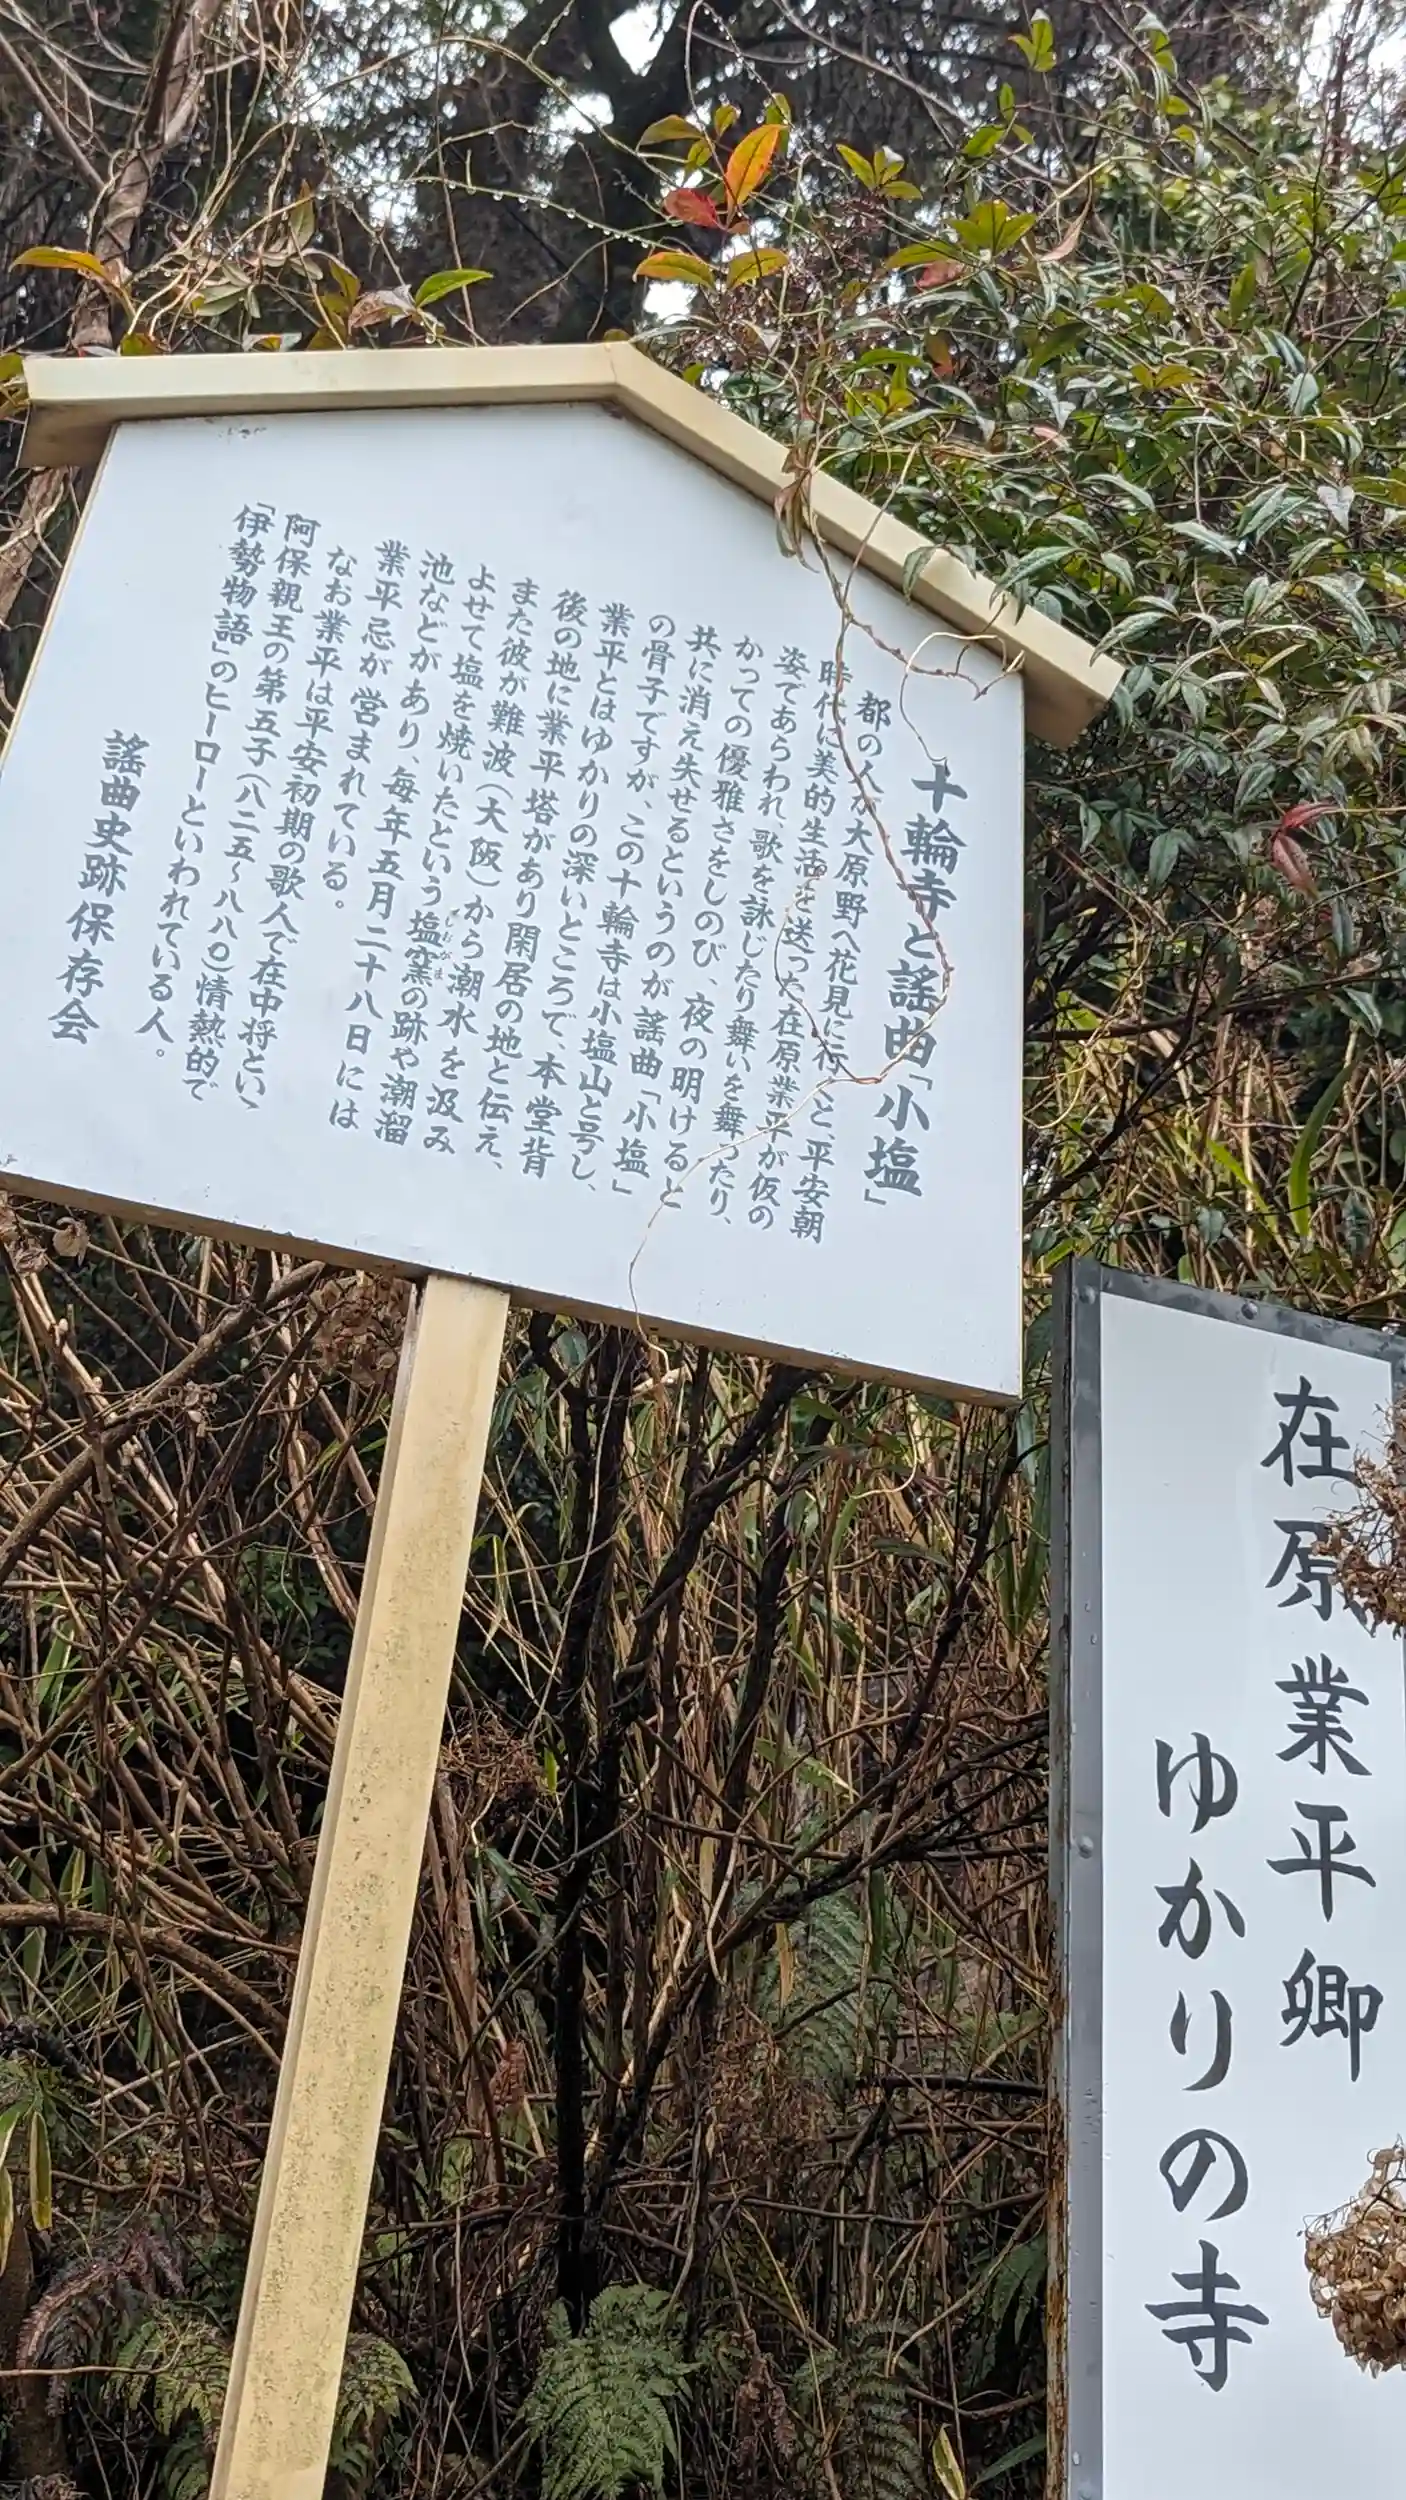 十輪寺と謡曲「小塩」
都の人が大原野へ花見に行くと、平安朝
時代に美的生活を送った在原業平が仮の
姿であらわれ、歌を詠じたり舞いを舞ったり、
かっての優雅さをしのび、夜の明けると
共に消え失せるというのが謡曲「小塩」
の骨子ですが、この十輪寺は小塩山と号し、
業平とはゆかりの深いところで、本堂背
後の地に業平塔があり閑居の地と伝え、
また彼が難波(大阪)から潮水を汲み
よせて塩を焼いたという塩窯の跡や潮溜
しおがま
池などがあり、毎年五月二十八日には
業平忌が営まれている。
なお業平は平安初期の歌人で在中将といゝ
阿保親王の第五子(八二五～八八〇)情熱的で
「伊勢物語」のヒーローといわれている人。
謡曲史跡保存会
在原業平卿
ゆかりの寺